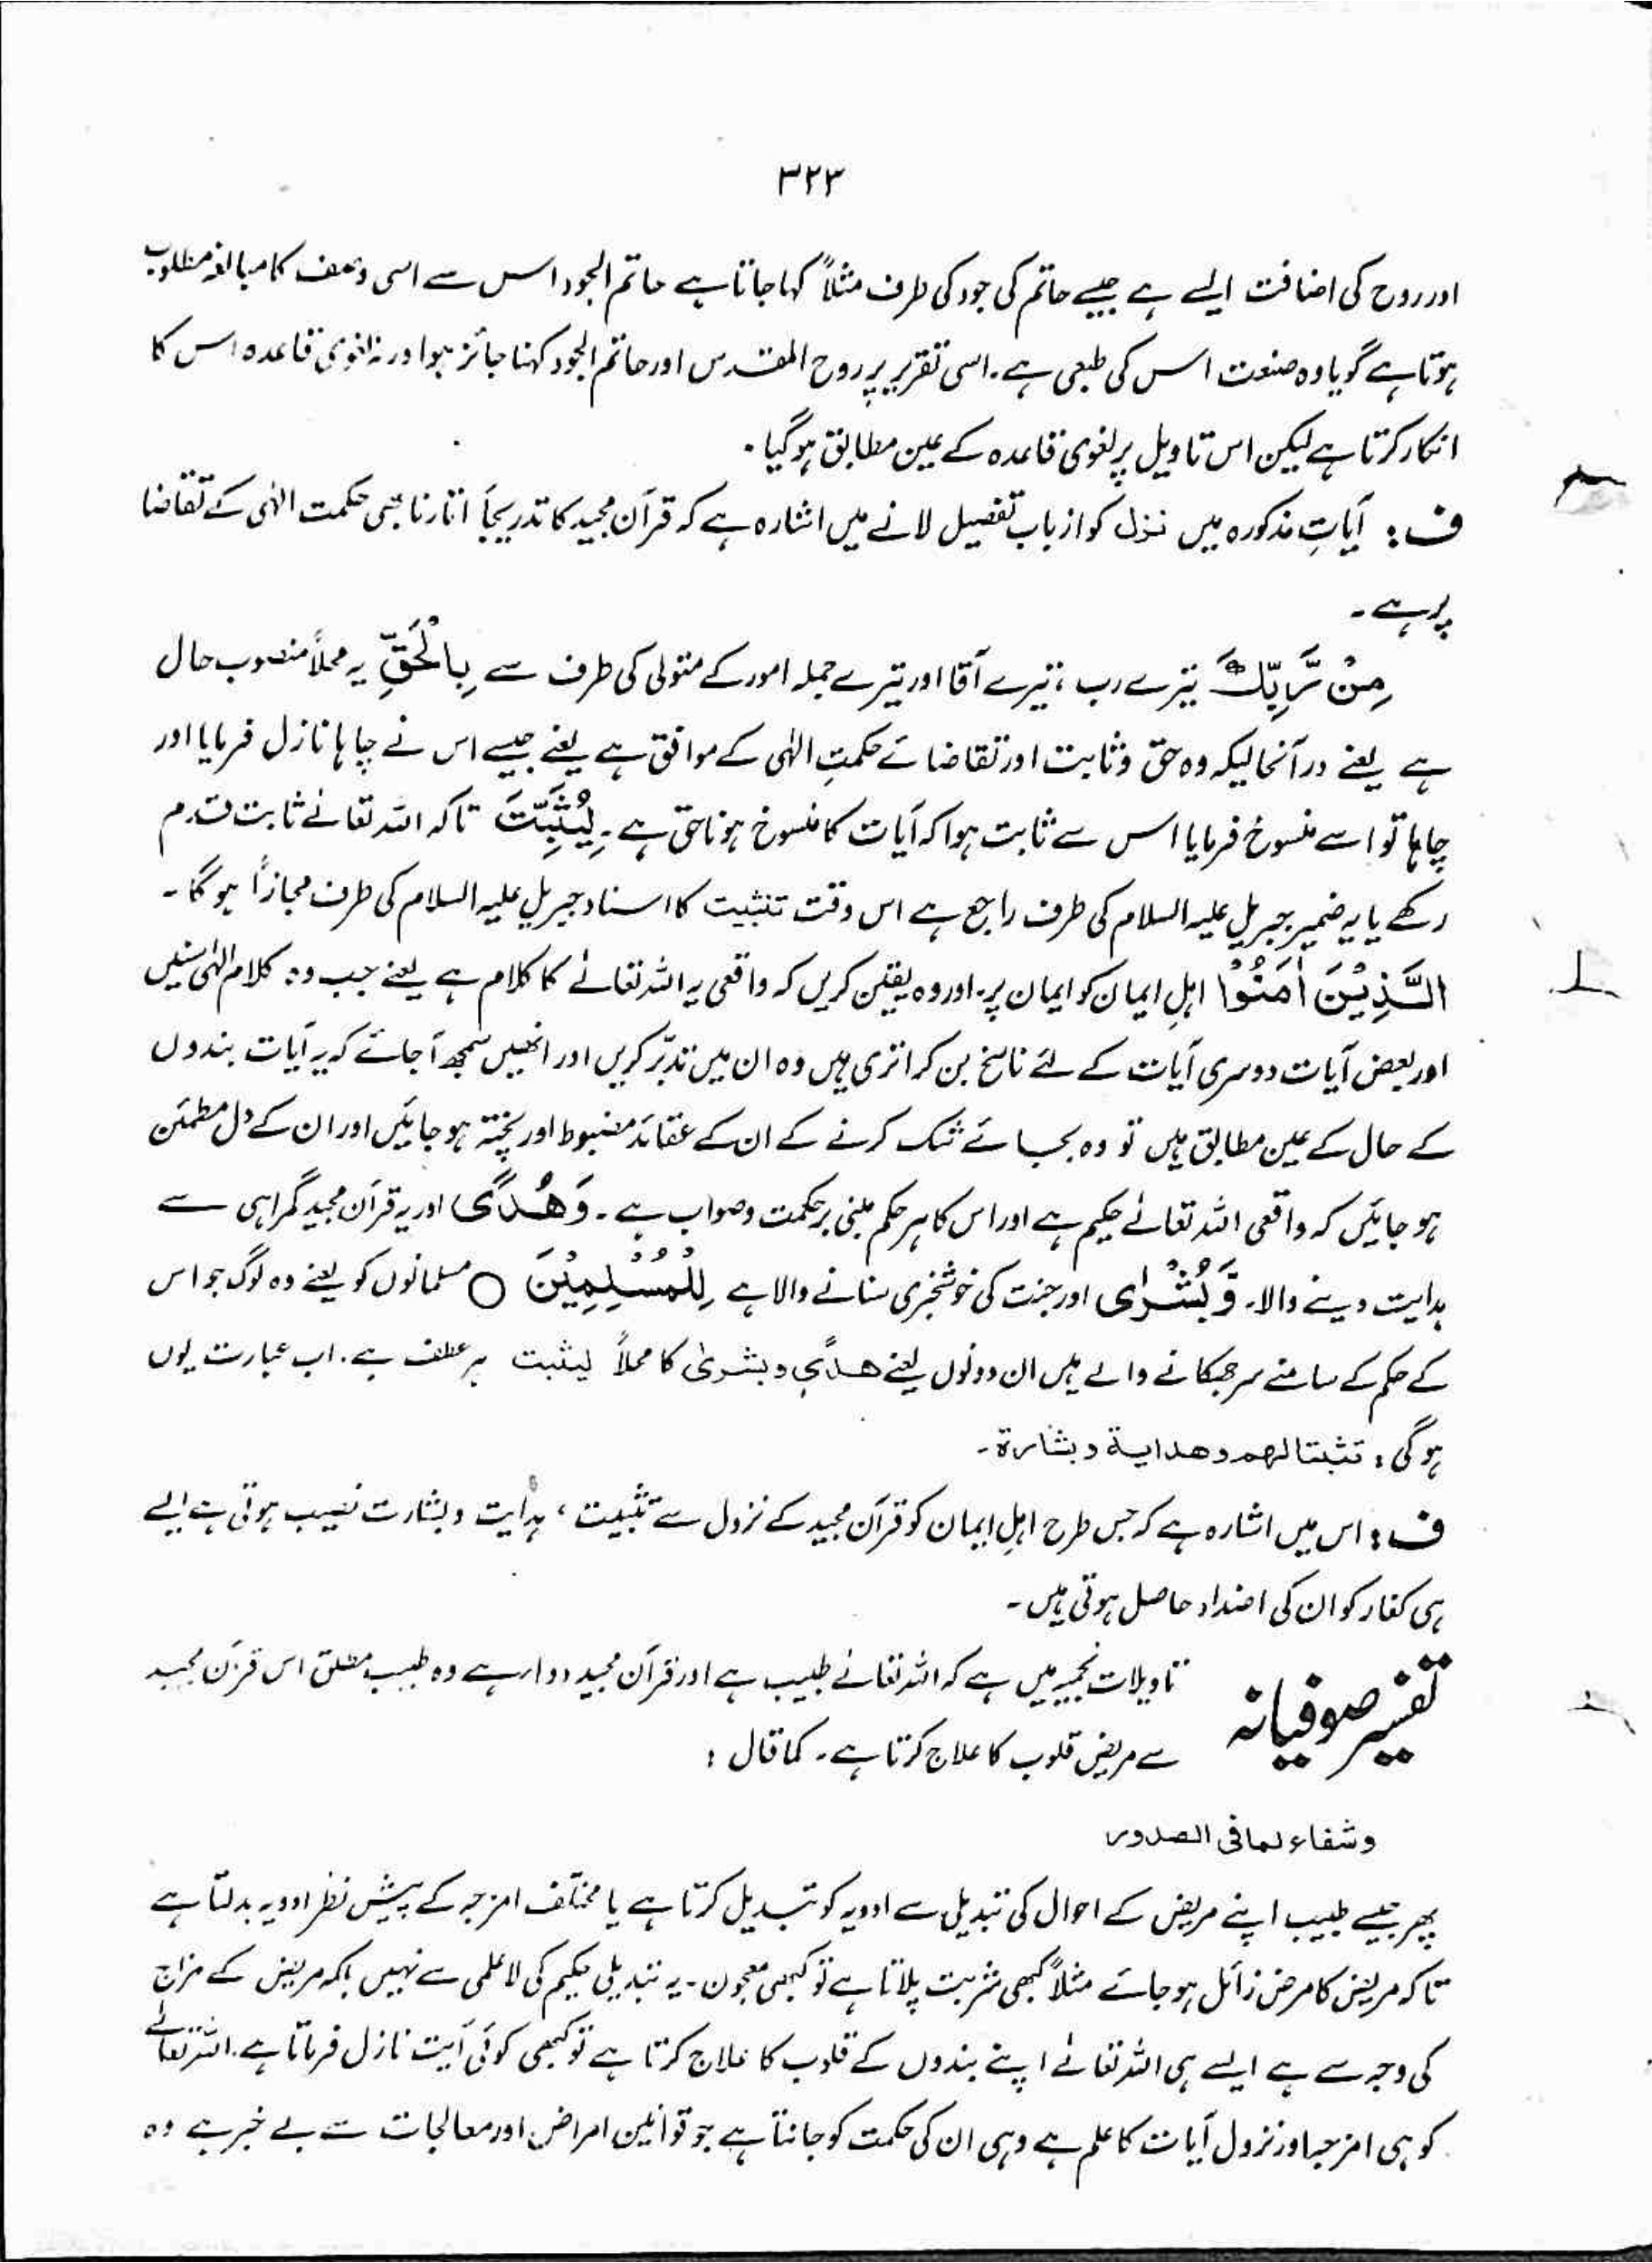 ۳۲۳
اور روح کی اضافت ایسے ہے جیسے حاتم کی جود کی طرف مثلاً کہا جاتا ہے حاتم الجود اس سے اسی وصف کا مبالغہ مطلوب
ہوتا ہے گویا وہ صنعت اس کی طبعی ہے۔ اسی تقریر پر روح القدس اور حاتم الجود کہنا جائز ہوا ورنہ لغوی قاعدہ اس کا
انکار کرتا ہے لیکن اس تاویل پر لغوی قاعدہ کے عین مطابق ہو گیا۔
ف: آیاتِ مذکورہ میں نزل کو از باب تفعیل لانے میں اشارہ ہے کہ قرآن مجید کا تدریجاً اتارنا بھی حکمت الٰہی کے تقاضا
پر ہے۔
مِنْ رَّبِّكَ تیرے رب، تیرے آقا اور تیرے جملہ امور کے متولی کی طرف سے بِالْحَقِّ یہ محلاً منصوب حال
ہے یعنے درآنحالیکہ وہ حق وثابت اور تقاضائے حکمتِ الٰہی کے موافق ہے یعنے جیسے اس نے چاہا نازل فرمایا اور
چاہا تو اسے منسوخ فرمایا اس سے ثابت ہوا کہ آیات کا منسوخ ہونا حق ہے۔ لِيُثَبِّتَ تاکہ اللہ تعالےٰ ثابت قدم
رکھے یا یہ ضمیر جبریل علیہ السلام کی طرف راجع ہے اس وقت تثبیت کا اسناد جبریل علیہ السلام کی طرف مجازاً ہو گا۔
الَّذِيْنَ اٰمَنُوْا اہلِ ایمان کو ایمان پر۔ اور وہ یقین کریں کہ واقعی یہ اللہ تعالےٰ کا کلام ہے یعنے جب وہ کلام الٰہی سنیں
اور بعض آیات دوسری آیات کے لئے ناسخ بن کر اتری ہیں وہ ان میں تدبّر کریں اور انھیں سمجھ آ جائے کہ یہ آیات بندوں
کے حال کے عین مطابق ہیں تو وہ بجائے شک کرنے کے ان کے عقائد مضبوط اور پختہ ہو جائیں اور ان کے دل مطمئن
ہو جائیں کہ واقعی اللہ تعالےٰ حکیم ہے اور اس کا ہر حکم مبنی بر حکمت وصواب ہے۔ وَهُدًى اور یہ قرآن مجید گمراہی سے
ہدایت دینے والا۔ وَّبُشْرٰى اور جنت کی خوشخبری سنانے والا ہے لِلْمُسْلِمِيْنَ ○ مسلمانوں کو یعنے وہ لوگ جو اس
کے حکم کے سامنے سر جھکانے والے ہیں ان دونوں یعنے هدًى و بشرىٰ کا محلاً لیثبت پر عطف ہے۔ اب عبارت یوں
ہو گی: تثبتا لهم وهداية وبشارة۔
ف: اس میں اشارہ ہے کہ جس طرح اہلِ ایمان کو قرآن مجید کے نزول سے تثبیت، ہدایت وبشارت نصیب ہوتی ہے ایسے
ہی کفار کو ان کی اضداد حاصل ہوتی ہیں۔
تفسیر صوفیانہ تاویلات نجمیہ میں ہے کہ اللہ تعالےٰ طبیب ہے اور قرآن مجید دوا ہے وہ طبیب مطلق اس قرآن مجید
سے مریض قلوب کا علاج کرتا ہے۔ کما قال:
وشفاء لما فى الصدور
پھر جیسے طبیب اپنے مریض کے احوال کی تبدیلی سے ادویہ کو تبدیل کرتا ہے یا مختلف امزجہ کے پیشِ نظر ادویہ بدلتا ہے
تاکہ مریض کا مرض زائل ہو جائے مثلاً کبھی شربت پلاتا ہے تو کبھی معجون۔ یہ تبدیلی حکیم کی لا علمی سے نہیں بلکہ مریض کے مزاج
کی وجہ سے ہے ایسے ہی اللہ تعالےٰ اپنے بندوں کے قلوب کا علاج کرتا ہے تو کبھی کوئی آیت نازل فرماتا ہے۔ اللہ تعالےٰ
کو ہی امزجہ اور نزول آیات کا علم ہے وہی ان کی حکمت کو جانتا ہے جو قوانین امراض اور معالجات سے بے خبر ہے وہ